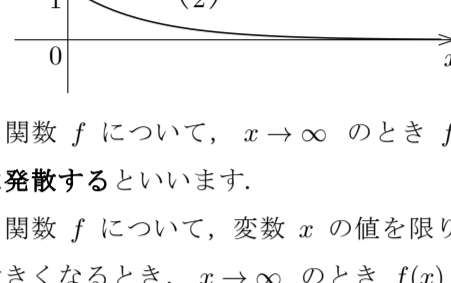 1 (2)
0
関数 f について， x → ∞ のとき f
発散するといいます．
関数 f について，変数 x の値を限り
きくなるとき， x → ∞ のとき f(x)